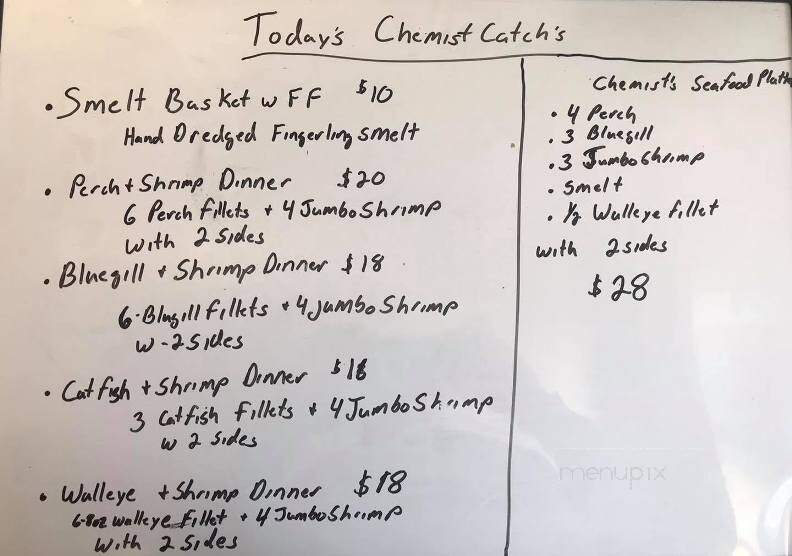 Today's Chemist Catch's
• Smelt Basket w FF $10
Hand Dredged Fingerling smelt
• Perch + Shrimp Dinner $20
6 Perch fillets + 4 Jumbo Shrimp
with 2 sides
• Bluegill + Shrimp Dinner $18
6-Blugill fillets + 4 Jumbo Shrimp
w - 2 Sides
• Catfish + Shrimp Dinner $18
3 Catfish fillets + 4 Jumbo Shrimp
w 2 sides
• Walleye + Shrimp Dinner $18
6-8oz walleye fillet + 4 Jumbo Shrimp
with 2 sides
Chemist's Seafood Platt
• 4 Perch
• 3 Bluegill
• 3 Jumbo Shrimp
• Smelt
• 1/2 Walleye fillet
with 2 sides
$28
menupix